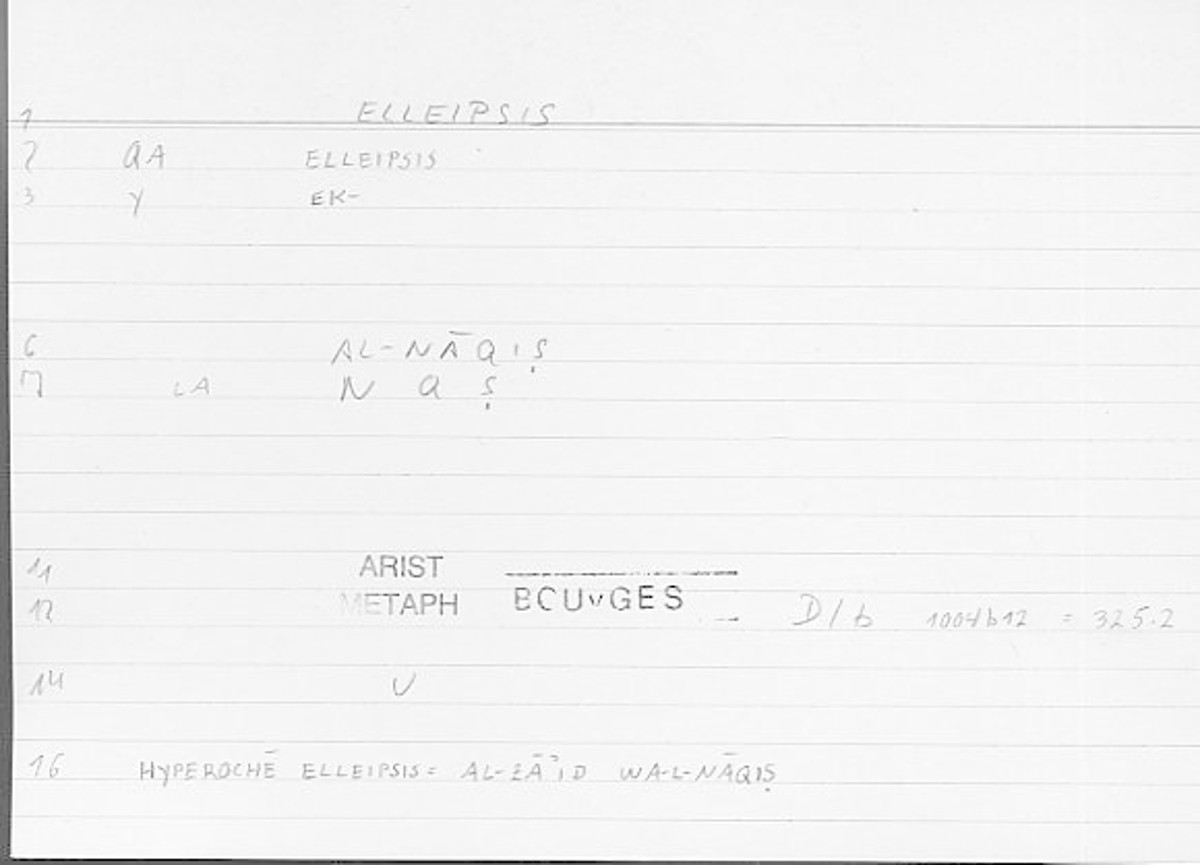 1 ELLEIPSIS
2 QA ELLEIPSIS
3 Y EK-
6 AL-NĀQIṢ
7 LA N Q Ṣ
11 ARIST
12 METAPH BOUYGES D/b 1004b12 = 325.2
14 V
16 HYPEROCHĒ ELLEIPSIS= AL-ZĀʾID WA-L-NĀQIṢ